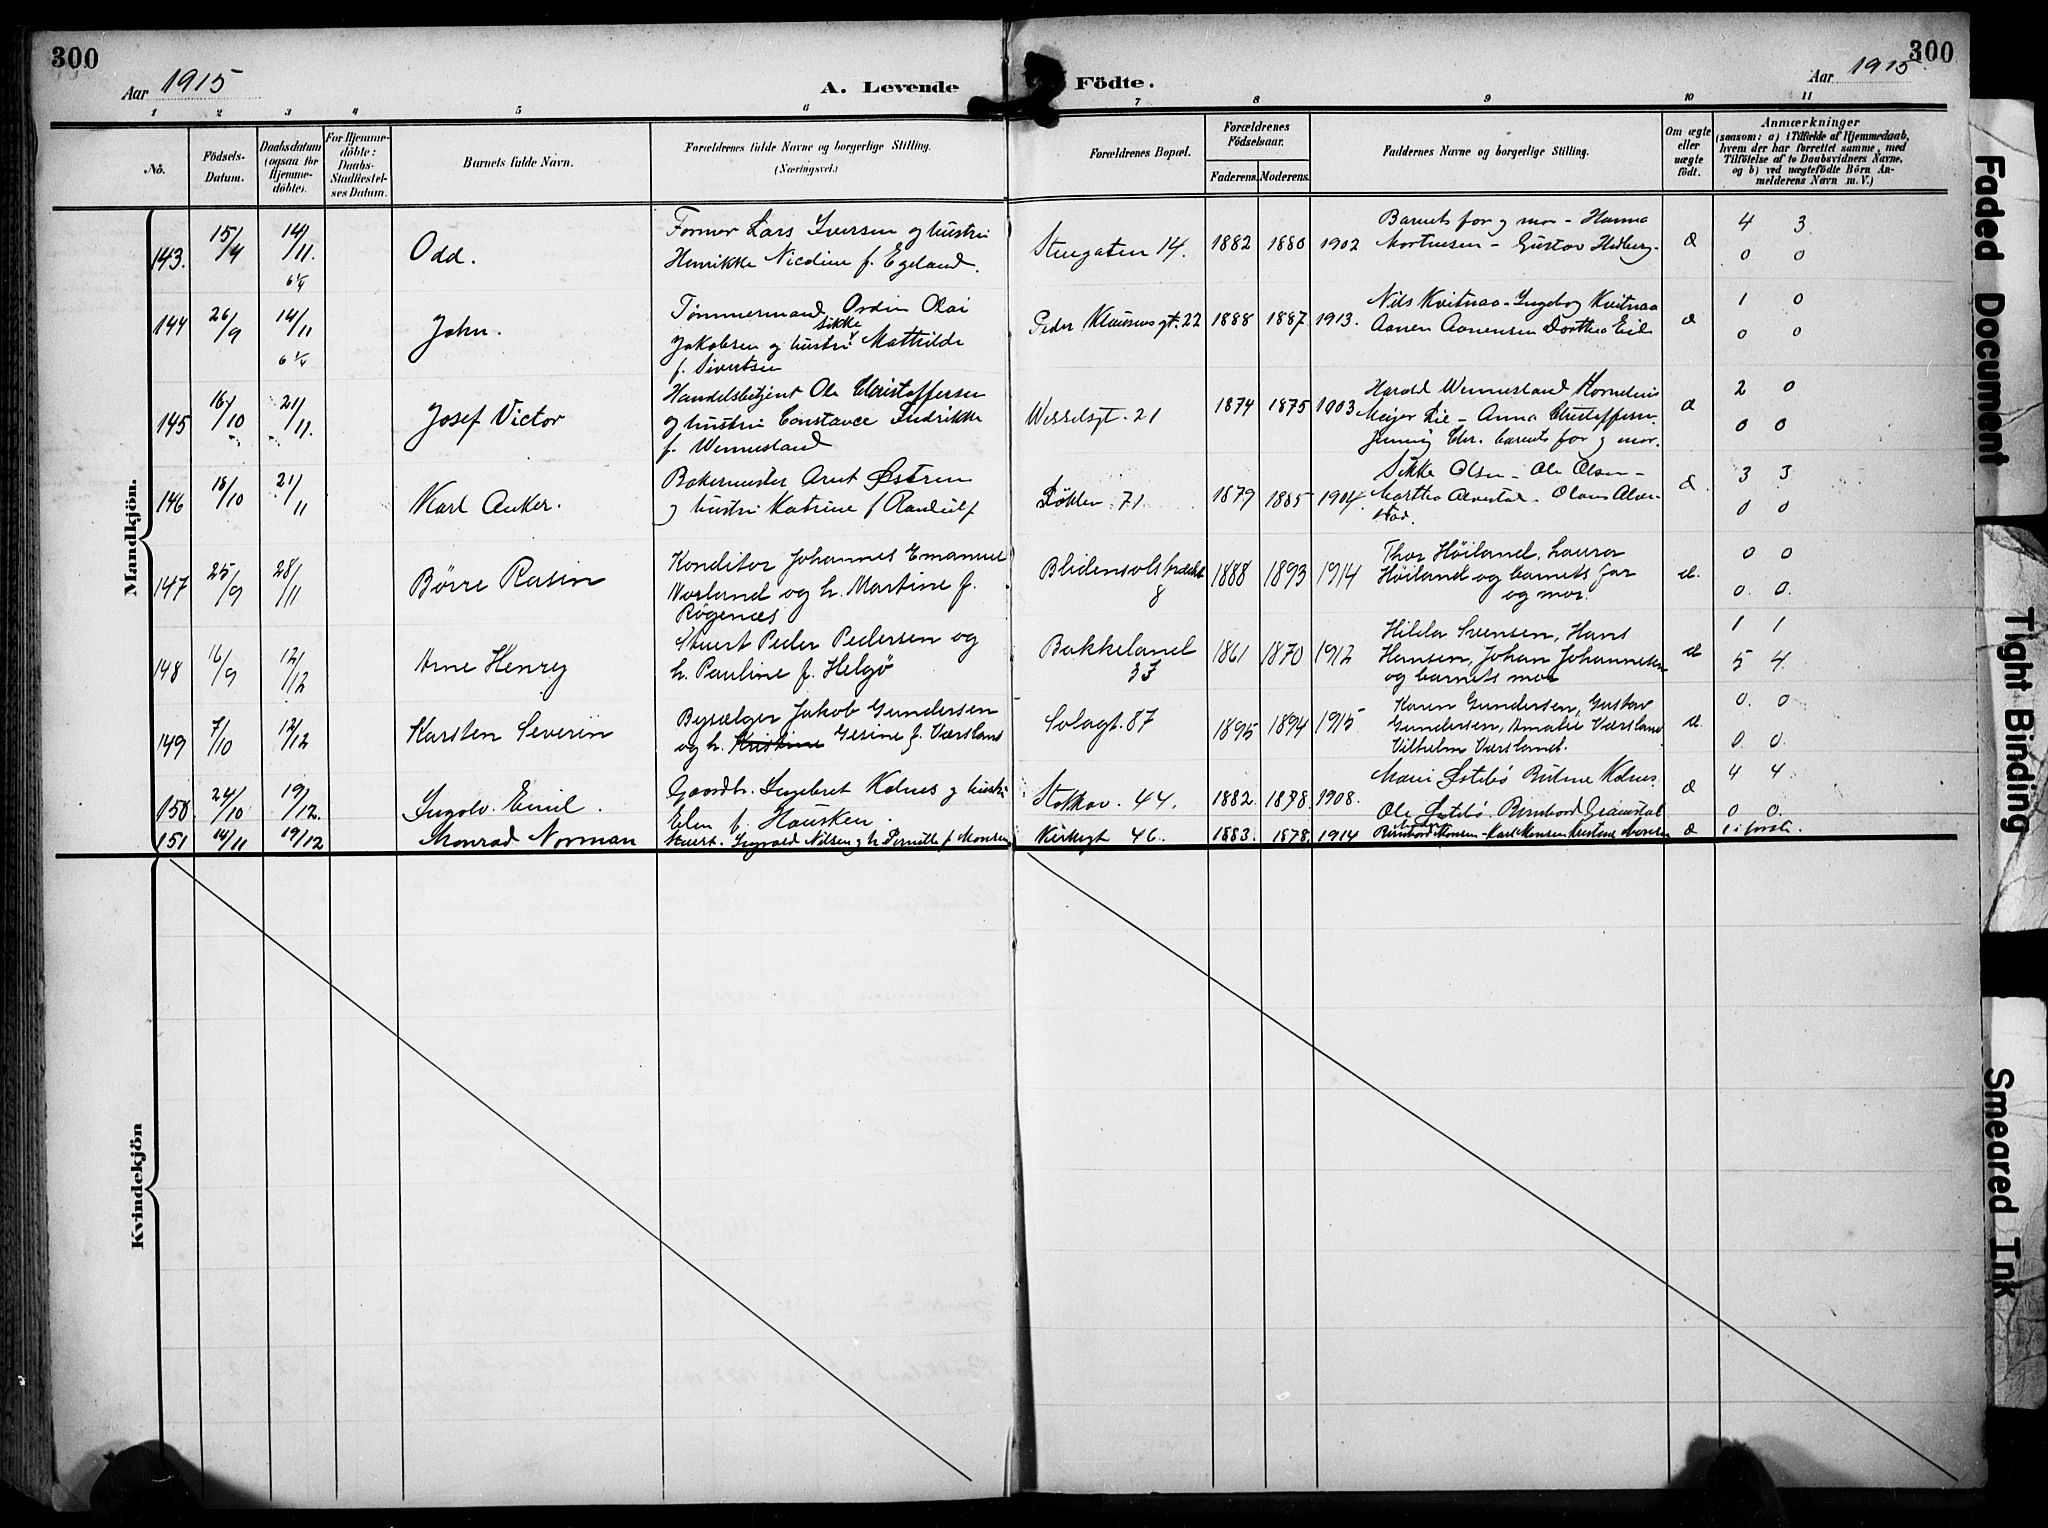 300
Aar 1915
A. Levende Födte.
Aar 1915
300
1 2 3 4 5 6 7 8 9 10 11
No.
Födsels-
Datum.
Daabsdatum
(ogsaa for
Hjemme-
döbte).
For Hjemme-
döbte:
Daabs-
Stadfæstel-
ses Datum.
Barnets fulde Navn.
Forældrenes fulde Navne og borgerlige Stilling.
(Næringsvei.)
Forældrenes Bopæl.
Forældrenes
Födselsaar.
Faderens. Moderens.
Faddernes Navne og borgerlige Stilling.
Om ægte
eller
uægte
født.
Anmærkninger
(saasom: a) i Tilfælde af Hjemmedaab,
hvem der har forrettet samme, med
Tilföielse af to Daabsvidners Navne,
og b) ved uægtefödte Börn An-
melderens Navn m. V.)
Mandkjön.
143. 15/4 14/11. 6 1/4
Odd.
Former Lars Iversen og hustru
Henrikke Nicoline f. Egeland.
Stengaten 14. 1882 1880 1902
Barnets far og mor - Hanna
Mortensen - Gustav Hedberg.
æ
4 3.
0 0
144 26/9 14/11 6 1/4
John.
Tømmermand Ordin Olai
Jakobsen og hustru Sikke Mathilde
f. Sivertsen
Peder Klausens gt. 22 1888 1887 1913.
Nils Kvitnaa - Ingeborg Kvitnaa
Aanen Aanensen Dorthea Eide
æ
1 0
0 0
145 16/10 21/11.
Josef Victor
Handelsbetjent Ole Christoffersen
og hustru Constance Fredrikke
f. Wennesland
Wesselsgt. 21 1874 1875 1903
Harald Wennesland Kornelius
Meijer Lie - Anna Christoffersen.
Jenny Chr. barnets far og mor.
æ
2 0
0 0
146 18/10 21/11
Karl Anker.
Bakermester Arnt Østrem
og hustru Katrine f Randulf
Løkken 71 1879 1885 1904.
Sikke Olsen - Ole Olsen -
Martha Alvestad - Olaus Alve-
stad.
æ
3 3
0 0
147 25/9 28/11
Börre Rasin
Konditor Johannes Emanuel
Norland og h. Martine f.
Røgenæs
Blidensols brædet
8
1888 1893 1914
Thor Höiland, Laura
Höiland og barnets far
og mor.
æ.
0 0
0. 0.
148 16/9 12/12
Arne Henry
Stuert Peder Pedersen og
h. Pauline f. Helgø
Bakkeland
33
1861 1870 1912
Hilda Svensen, Hans
Hansen, Johan Johannesen
og barnets mor
æ
1 1
5 4
149 7/10 12/12
Karsten Severin
Bysælger Jakob Gundersen
og h. Kristine Gesine f. Værsland
Solagt. 87 1895 1894 1915
Karen Gundersen, Gustav
Gundersen, Amalie Værsland
Vilhelm Værsland.
æ.
0. 0.
0. 0.
150. 24/10 19/12.
Ingolv Emil.
Gaardbr. Ingebret Kolnes og hustru
Elen f. Hausken.
Stokkav. 44. 1882. 1878. 1908.
Marie Østebø Kolnes.
Ole Østebø.
æ
4 4.
0 0.
151 14/11 19/12
Monrad Norman
Stuert. Ingvald Nilsen og h. Pernille f Monsen
Kirkegt 46. 1883. 1878. 1914
Monsen - Karl Monsen Monsen
æ
1 i første.
Kvindekjön
Faded Document
Tight Binding
Smeared Ink